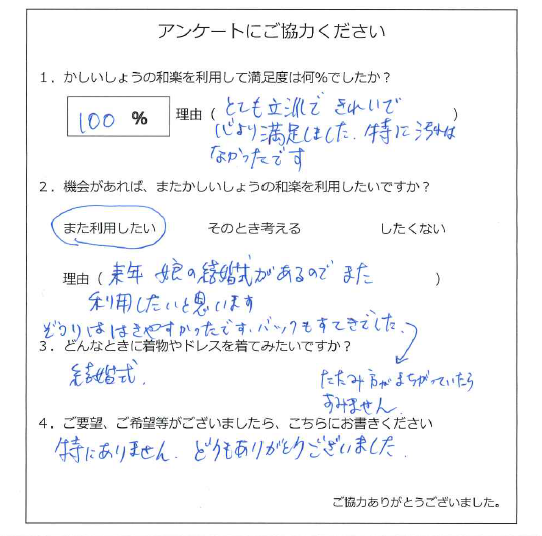 アンケートにご協力ください
1．かしいしょうの和楽を利用して満足度は何%でしたか？
100 %
理由（とても立派で きれいで）
心より満足しました。特に
なかったです
2．機会があれば、またかしいしょうの和楽を利用したいですか？
また利用したい そのとき考える したくない
理由（来年 娘の結婚式があるので また）
利用したいと思います
ぞうりははきやすかったです。バックもすてきでした。
3．どんなときに着物やドレスを着てみたいですか？
結婚式.
たたみ方がまちがっていたら
すみません
4．ご要望、ご希望等がございましたら、こちらにお書きください
特にありません. どうもありがとうございました.
ご協力ありがとうございました。